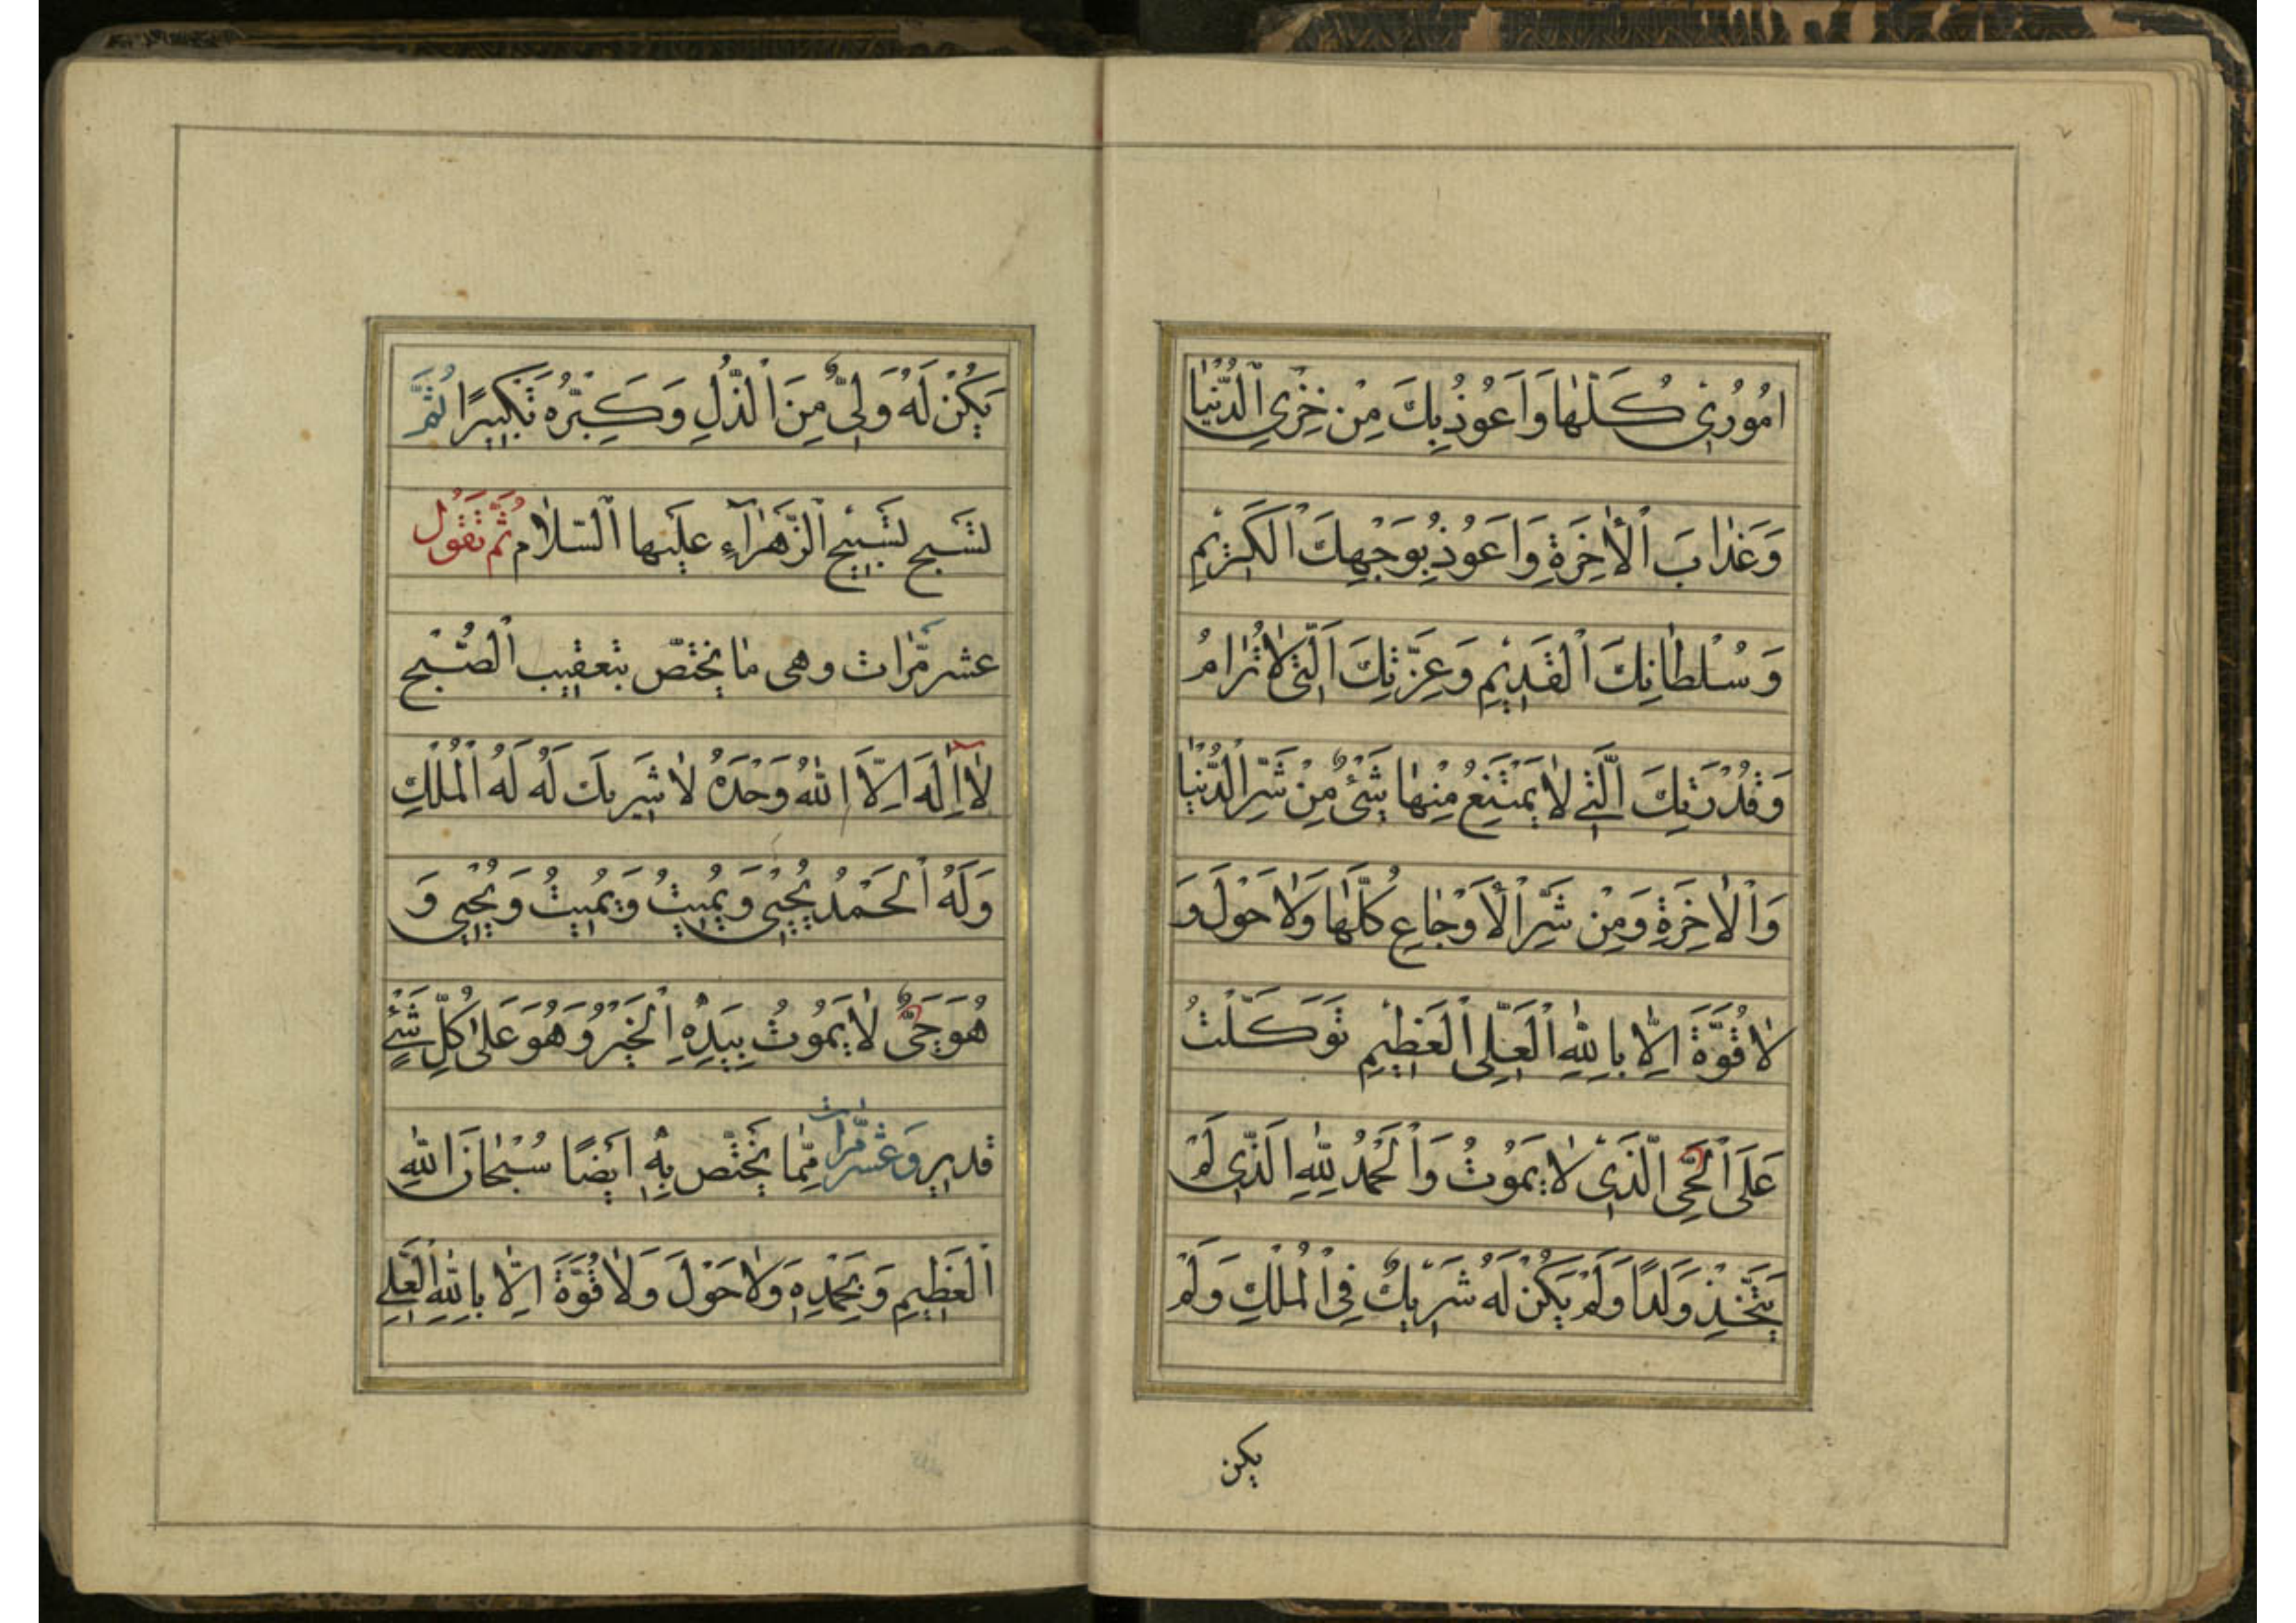 اُمُوُرىٖ كُلِّهٰا وَاَعُوُذُ بِكَ مِنْ خِزْىِ الْدُّنْيٰا
وَعَذٰابَ الْأٰخِرَةِ وَاَعُوُذُ بِوَجْهِكَ الْكَريٖمِ
وَسُلْطٰانِكَ الْقَديٖمِ وَعِزَّتِكَ اَلَّتىٖ لاٰ تُرٰامُ
وَقُدْرَتِكَ الَّتىٖ لاٰ يَمْتَنِعُ مِنْهٰا شَىْءٌ مِنْ شَرِّ الْدُّنْيٰا
وَالْاٰخِرَةِ وَمِنْ شَرِّ الْأَوْجٰاعِ كُلِّهٰا وَلاٰ حَوْلَ وَ
لاٰ قُوَّةَ اِلّاٰ بِاللّٰهِ الْعَلِىِّ الْعَظيٖمِ تَوَكَّلْتُ
عَلَى الْحَىِّ الَّذىٖ لاٰ يَمُوُتُ وَالْحَمْدُ لِلّٰهِ الَذّىٖ لَمْ
يَتَّخِذْ وَلَدًا وَلَمْ يَكُنْ لَهُ شَريٖكٌ فِى الْمُلْكِ وَلَمْ
يكن
يَكُنْ لَهُ وَلِىٌّ مِنَ الْذُّلِ وَكَبِّرْهُ تَكْبيٖرًا ثُمَّ
تسَبح تسَبيٖح الْزَّهْرٰآءِ عليٖها الْسّلاٰم ثُمَّ تَقوُل
عشر مَّرٰات وهى مٰا يختصّ بتعقيٖب الْصُّبْح
لاٰ اِلٰهَ اِلَّا اللّٰهُ وَحْدَهُ لاٰ شَريٖكَ لَهُ لَهُ الْمُلْكِ
وَلَهُ الْحَمْدُ يُحْيىٖ وَيُميٖتُ وَيُميٖتُ وَيُحْيىٖ وَ
هُوَ حَىٌّ لاٰ يَمُوُتُ بِيَدِهِ الْخَيْرُ وَهُوَ عَلىٰ كُلِّ شَىْءٍ
قديٖر وَعَشر مَّرٰات مِمّٰا يَخْتَصّ بِهِ اَيْضًا سُبْحٰانَ اللّٰهِ
الْعَظيٖمِ وَبِحَمْدِهِ وَلاٰ حَوْلَ وَلاٰ قُوَّةَ اِلّاٰ بِاللّٰهِ الْعَلِىِّ